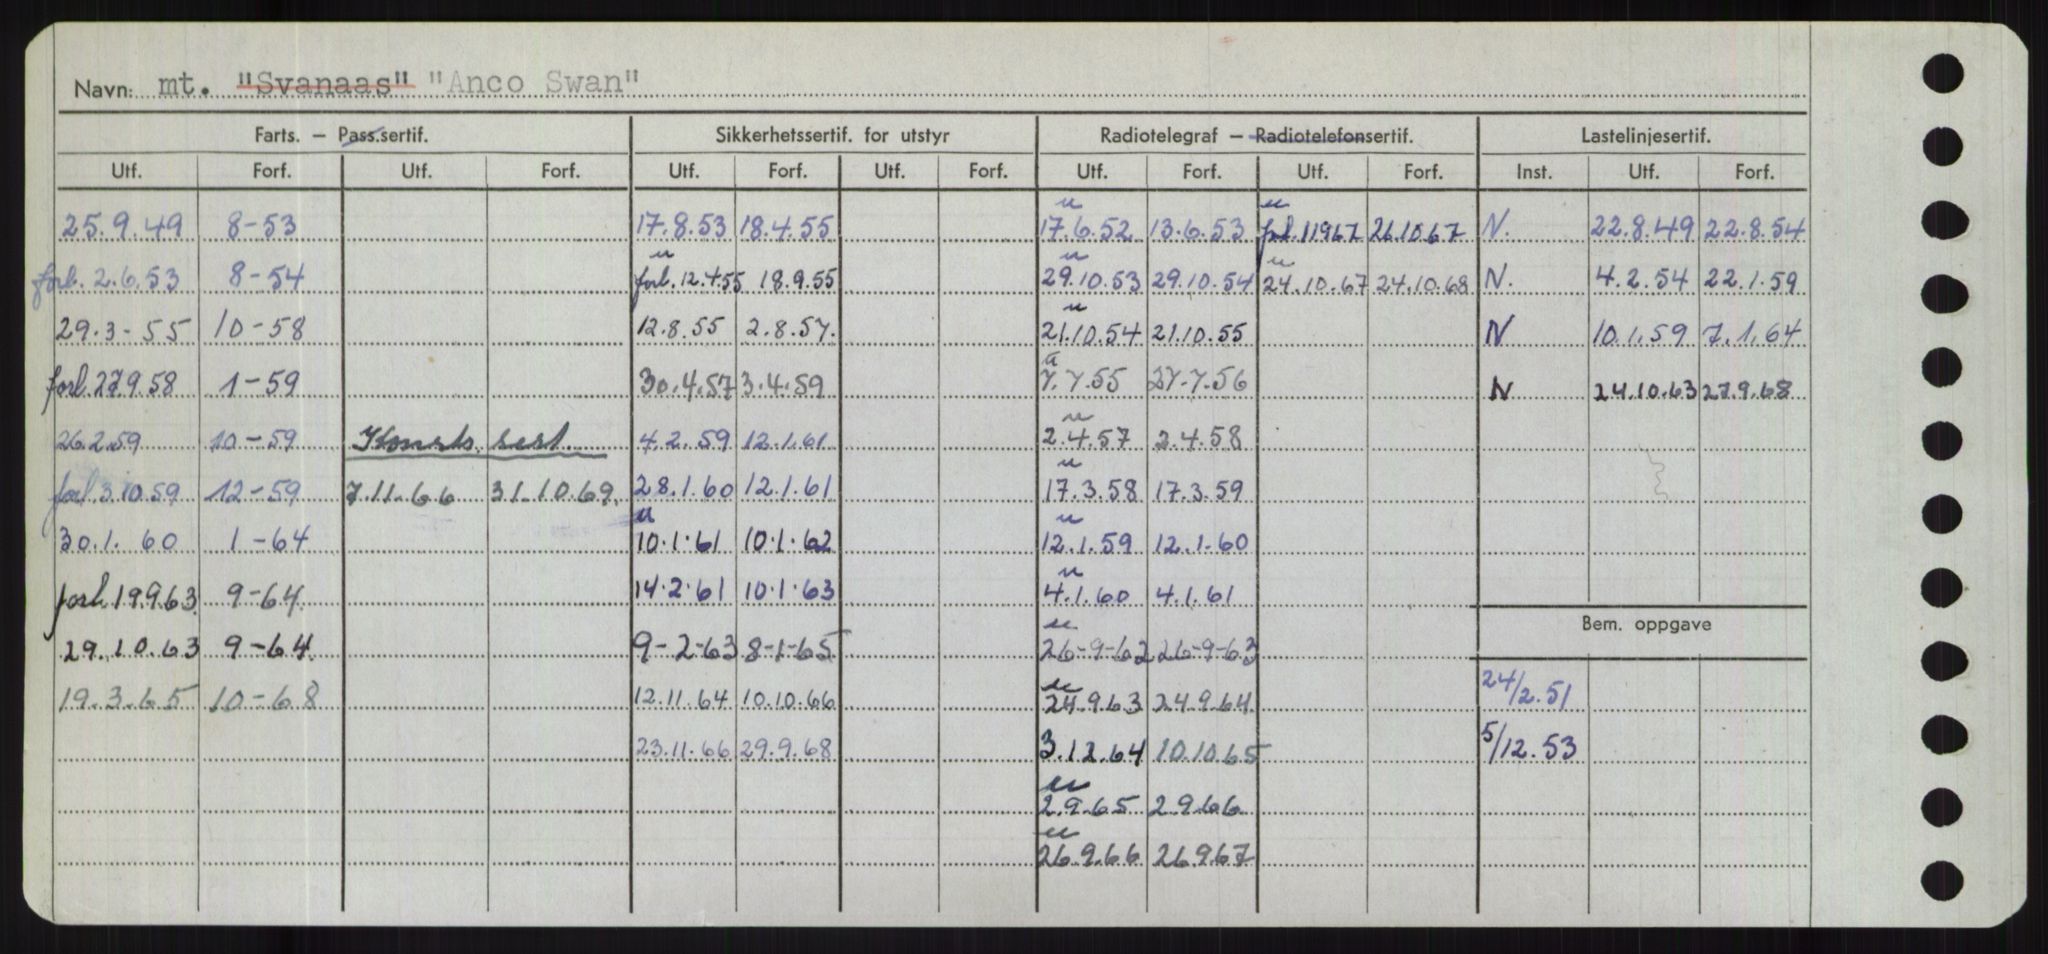 Navn: mt. "Svanaas" "Anco Swan"
Farts. — Pass.sertif. Sikkerhetssertif. for utstyr Radiotelegraf — Radiotelefonsertif. Lastelinjesertif.
Utf. Forf. Utf. Forf. Utf. Forf. Utf. Forf. Utf. Forf. Utf. Forf. Inst. Utf. Forf.
25.9.49 8-53 17.8.53 18.4.55 17.6.52 13.6.53 forl. 11967 26.10.67 N. 22.8.49 22.8.54
forl. 2.6.53 8-54 forl. 12.4.55 18.9.55 29.10.53 29.10.54 24.10.67 24.10.68 N. 4.2.54 22.1.59
29.3-55 10-58 12.8.55 2.8.57. 21.10.54 21.10.55 N 10.1.59 7.1.64
forl. 27.9.58 1-59 30.4.57 3.4.59 7.7.55 27.7.56 N 24.10.63 27.9.68
26.2.59 10-59 Konstr. sert. 4.2.59 12.1.61 2.4.57 2.4.58
forl 3.10.59 12-59 7.11.66 31.10.69. 28.1.60 12.1.61 17.3.58 17.3.59
30.1.60 1-64 10.1.61 10.1.62 12.1.59 12.1.60
forl. 19963 9-64 14.2.61 10.1.63 4.1.60 4.1.61
Bem. oppgave
29.10.63 9-64 9-2-63 8-1-65 26-9-62 26-9-63
19.3.65 10-68 12.11.64 10.10.66 24.9.63 24.9.64 24/2.51
23.11.66 29.9.68 3.12.64 10.10.65 5/12.53
2.9.65 2.9.66
26.9.66 26.9.67